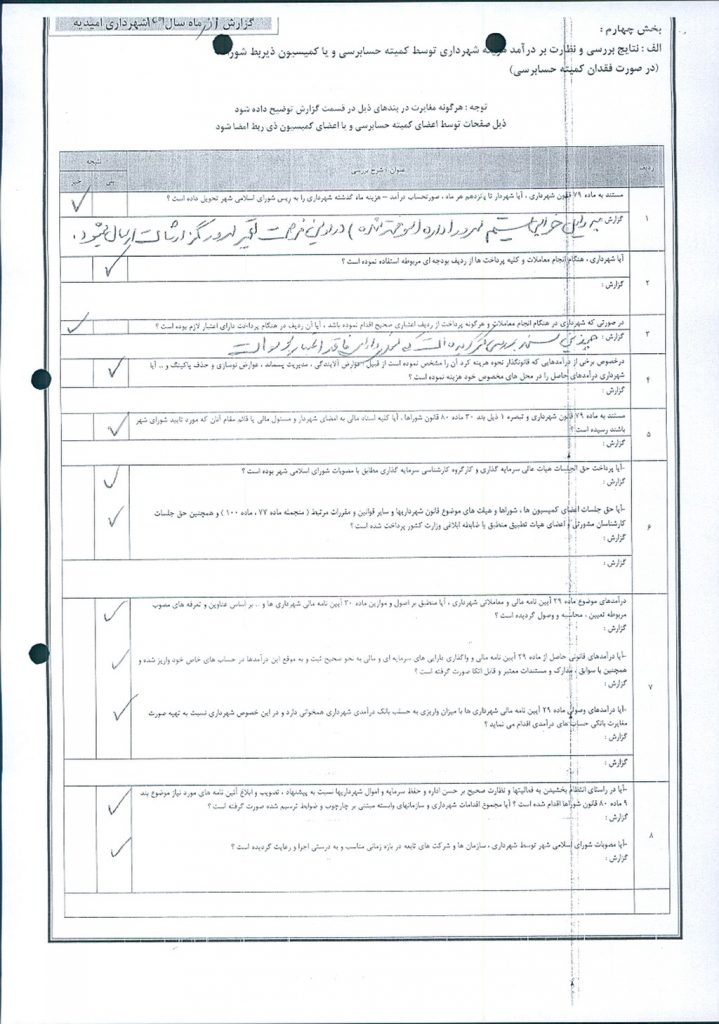 گزارش ماه سال شهرداری امیدیه
بخش چهارم :
الف : نتایج بررسی و نظارت بر درآمد هزینه شهرداری توسط کمیته حسابرسی و یا کمیسیون ذیربط شورا
(در صورت فقدان کمیته حسابرسی)
توجه : هرگونه مغایرت در بندهای ذیل در قسمت گزارش توضیح داده شود
ذیل صفحات توسط اعضای کمیته حسابرسی و یا اعضای کمیسیون ذی ربط امضا شود
ردیف
عنوان / شرح بررسی
نتیجه
بلی
خیر
۱
مستند به ماده ۷۹ قانون شهرداری ، آیا شهردار تا پانزدهم هر ماه ، صورتحساب درآمد – هزینه ماه گذشته شهرداری را به رییس شورای اسلامی شهر تحویل داده است ؟
گزارش : به دلیل خرابی سیستم در اولین فرصت گزارشات ارسال میشود .
۲
آیا شهرداری ، هنگام انجام معاملات و کلیه پرداخت ها از ردیف بودجه ای مربوطه استفاده نموده است ؟
گزارش :
۳
در صورتی که شهرداری در هنگام انجام معاملات و هرگونه پرداخت از ردیف اعتباری صحیح اقدام نموده باشد ، آیا آن ردیف در هنگام پرداخت دارای اعتبار لازم بوده است ؟
۴
درخصوص برخی از درآمدهایی که قانونگذار نحوه هزینه کرد آن را مشخص نموده است از قبیل عوارض آلایندگی ، مدیریت پسماند ، عوارض نوسازی و حذف پارکینگ و .. آیا
شهرداری درآمدهای حاصل را در محل های مخصوص خود هزینه نموده است ؟
گزارش :
۵
مستند به ماده ۷۹ قانون شهرداری و تبصره ۱ ذیل بند ۳۰ ماده ۸۰ قانون شوراها ، آیا کلیه اسناد مالی به امضای شهردار و مسئول مالی یا قائم مقام آنان که مورد تایید شورای شهر
باشند رسیده است ؟
گزارش :
۶
-آیا پرداخت حق الجلسات هیات عالی سرمایه گذاری و کارگروه کارشناسی سرمایه گذاری مطابق با مصوبات شورای اسلامی شهر بوده است ؟
گزارش :
-آیا حق جلسات اعضای کمیسیون ها ، شوراها و هیئت های موضوع قانون شهرداریها و سایر قوانین و مقررات مرتبط ( منجمله ماده ۷۷ ، ماده ۱۰۰ ) و همچنین حق جلسات
کارشناسان مشورتی و اعضای هیات تطبیق منطبق با ضابطه ابلاغی وزارت کشور پرداخت شده است ؟
گزارش :
گزارش :
۷
درآمدهای موضوع ماده ۲۹ آیین نامه مالی و معاملاتی شهرداری ، آیا منطبق بر اصول و موازین ماده ۳۰ آیین نامه مالی شهرداری ها و .. بر اساس عناوین و تعرفه های مصوب
مربوطه تعیین ، محاسبه و وصول گردیده است ؟
گزارش :
-آیا درآمدهای قانونی حاصل از ماده ۲۹ آیین نامه مالی و واگذاری دارایی های سرمایه ای و مالی به نحو صحیح ثبت و به موقع این درآمدها در حساب های خاص خود واریز شده و
همچنین با سوابق ، مدارک و مستندات معتبر و قابل اتکا صورت گرفته است ؟
گزارش :
-آیا درآمدهای وصولی ماده ۲۹ آیین نامه مالی شهرداری ها با میزان واریزی به حساب بانک درآمدی شهرداری همخوانی دارد و در این خصوص شهرداری نسبت به تهیه صورت
مغایرت بانکی حساب های درآمدی اقدام می نماید ؟
گزارش :
گزارش :
۸
-آیا در راستای انتظام بخشیدن به فعالیتها و نظارت صحیح بر حسن اداره و حفظ سرمایه و اموال شهرداریها نسبت به پیشنهاد ، تصویب و ابلاغ آئین نامه های مورد نیاز موضوع بند
۹ ماده ۸۰ قانون شوراها اقدام شده است ؟ آیا مجموع اقدامات شهرداری و سازمانهای وابسته مبتنی بر چارچوب و ضوابط ترسیم شده صورت گرفته است ؟
گزارش :
-آیا مصوبات شورای اسلامی شهر توسط شهرداری ، سازمان ها و شرکت های تابعه در بازه زمانی مناسب و به درستی اجرا و رعایت گردیده است ؟
گزارش :